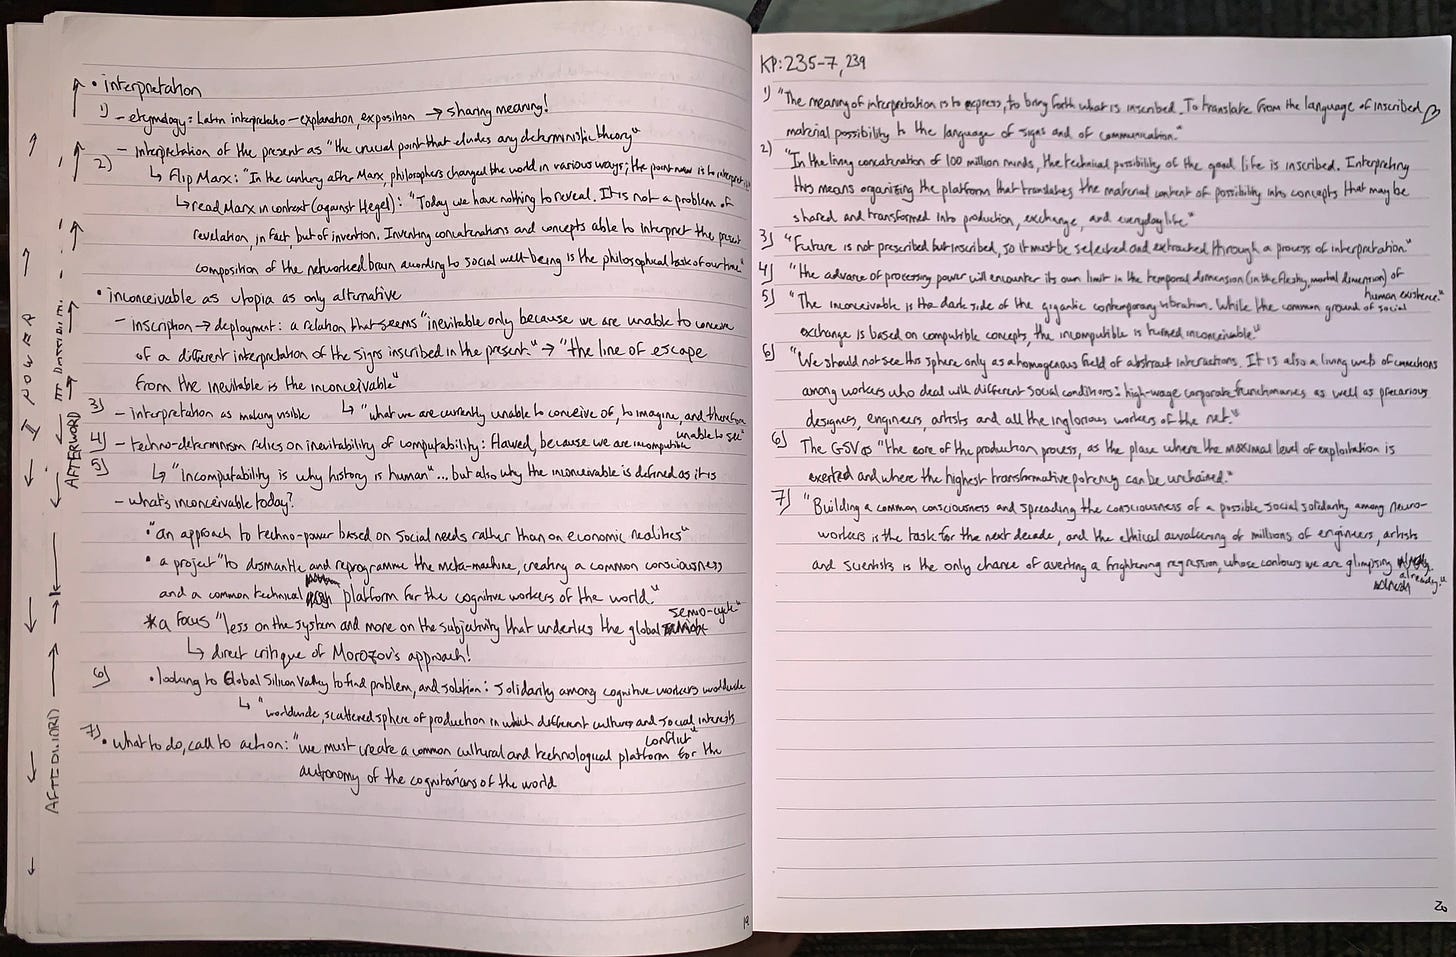 • interpretation
1) – etymology: Latin interpretatio – explanation, exposition → sharing meaning!
– Interpretation of the present as "the crucial point that eludes any deterministic theory"
2) ↳ Flip Marx: "In the century after Marx, philosophers changed the world in various ways; the point now is to interpret it
↳ read Marx in context (against Hegel): "Today we have nothing to reveal. It is not a problem of
revelation, in fact, but of invention. Inventing concatenations and concepts able to interpret the present
composition of the networked brain according to social well-being is the philosophical task of our time"
• inconceivable as utopia as only alternative
– inscription → deployment: a relation that seems "inevitable only because we are unable to conceive
of a different interpretation of the signs inscribed in the present." → "the line of escape
from the inevitable is the inconceivable"
3) – interpretation as making visible ↳ "what we are currently unable to conceive of, to imagine, and therefore
unable to see"
4) – techno-determinism relies on inevitability of computability: flawed, because we are incomputible
5) ↳ "Incomputability is why history is human"... but also why the inconceivable is defined as it is
– what's inconceivable today?
• "an approach to techno-power based on social needs rather than on economic realities"
• a project "to dismantle and reprogramme the meta-machine, creating a common consciousness
and a common technical platform for the cognitive workers of the world."
semio-cycle"
* a focus "less on the system and more on the subjectivity that underlies the global
↳ direct critique of Morozov's approach!
6) • looking to Global Silicon Valley to find problem, and solution: solidarity among cognitive workers worldwide
↳ "worldwide, scattered sphere of production in which different cultures and social interests
conflict"
7) • what to do, call to action: "we must create a common cultural and technological platform for the
autonomy of the cognitarians of the world
AFTERWORD
I POWER
AFTERWORD
19
KP: 235-7, 239
1) "The meaning of interpretation is to express, to bring forth what is inscribed. To translate from the language of inscribed
material possibility to the language of signs and of communication."
2) "In the living concatenation of 100 million minds, the technical possibility of the good life is inscribed. Interpreting
this means organizing the platform that translates the material content of possibility into concepts that may be
shared and transformed into production, exchange, and everyday life."
3) "Future is not prescribed but inscribed, so it must be selected and extracted through a process of interpretation"
4) "the advance of processing power will encounter its own limit in the temporal dimension (in the fleshy, mortal dimension) of
human existence."
5) "The inconceivable is the dark side of the gigantic contemporary vibration. While the common ground of social
exchange is based on computible concepts, the incomputible is turned inconceivable"
6) "We should not see this sphere only as a homogenous field of abstract interactions. It is also a living web of connections
among workers who deal with different social conditions: high-wage corporate functionaries as well as precarious
designers, engineers, artists and all the inglorious workers of the net."
6) The GSV as "the core of the production process, as the place where the maximal level of exploitation is
exerted and where the highest transformative potency can be unchained."
7) "Building a common consciousness and spreading the consciousness of a possible social solidarity among neuro-
workers is the task for the next decade, and the ethical awakening of millions of engineers, artists
and scientists is the only chance of averting a frightening regression, whose contours we are glimpsing
already."
20